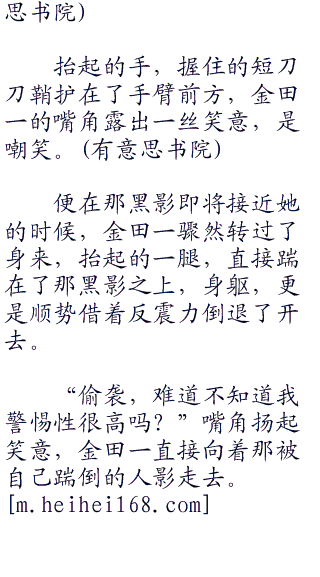 思书院)
抬起的手，握住的短刀
刀鞘护在了手臂前方，金田
一的嘴角露出一丝笑意，是
嘲笑。(有意思书院)
便在那黑影即将接近她
的时候，金田一骤然转过了
身来，抬起的一腿，直接踹
在了那黑影之上，身躯，更
是顺势借着反震力倒退了开
去。
“偷袭，难道不知道我
警惕性很高吗？”嘴角扬起
笑意，金田一直接向着那被
自己踹倒的人影走去。
[m.heihei168.com]